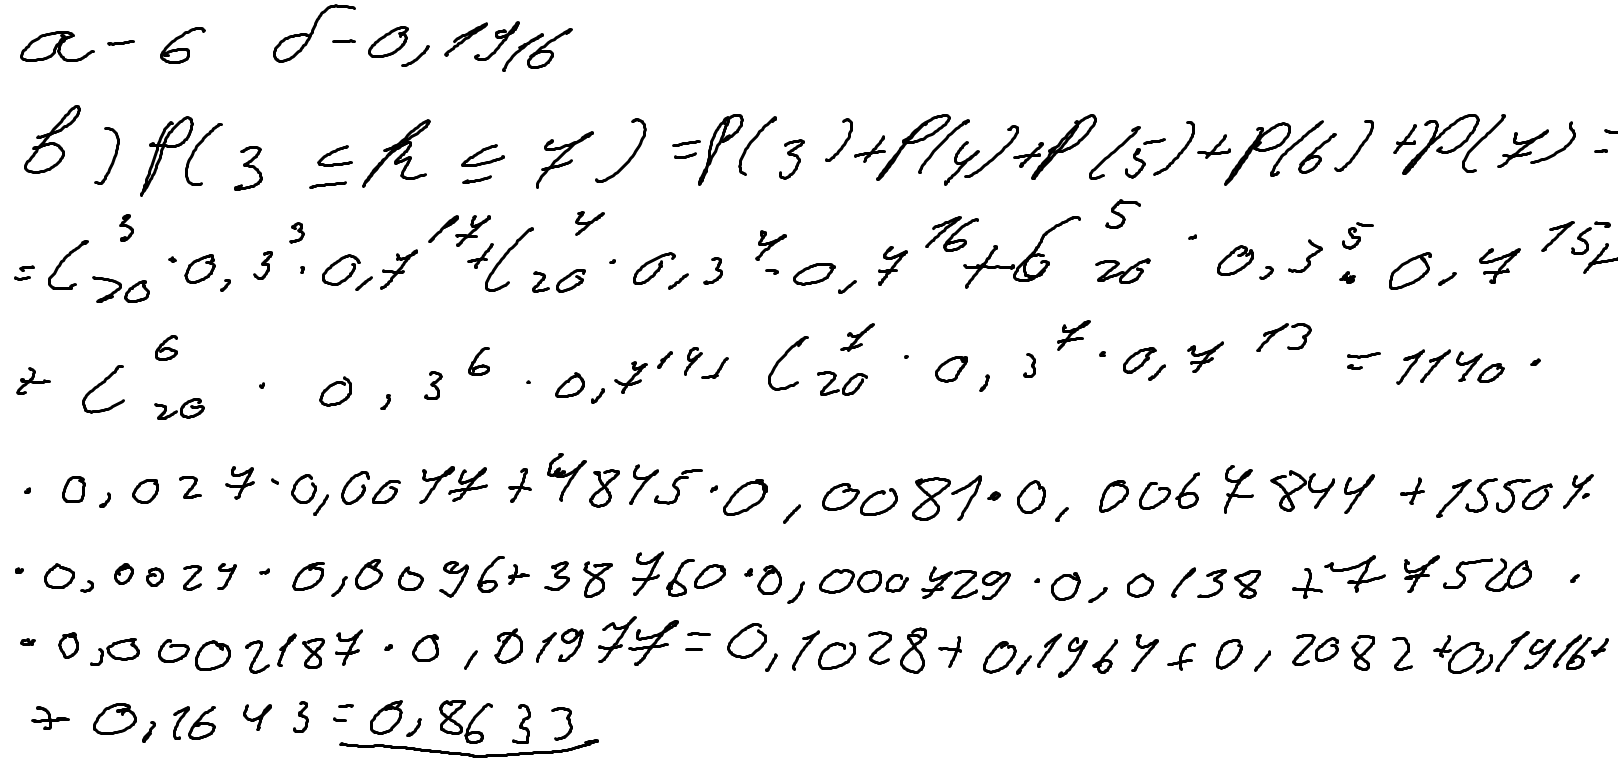 а - 6 б - 0,1916
в) P(3 ≤ k ≤ 7) = P(3) + P(4) + P(5) + P(6) + P(7) =
= C₂₀³ · 0,3³ · 0,7¹⁷ + C₂₀⁴ · 0,3⁴ · 0,7¹⁶ + C₂₀⁵ · 0,3⁵ · 0,7¹⁵ +
+ C₂₀⁶ · 0,3⁶ · 0,7¹⁴ + C₂₀⁷ · 0,3⁷ · 0,7¹³ = 1140 ·
· 0,027 · 0,0047 + 4845 · 0,0081 · 0,0067844 + 15504 ·
· 0,0024 · 0,0096 + 38760 · 0,000729 · 0,0138 + 77520 ·
· 0,0002187 · 0,01977 = 0,1028 + 0,1964 + 0,2082 + 0,1916 +
+ 0,1643 = 0,8633